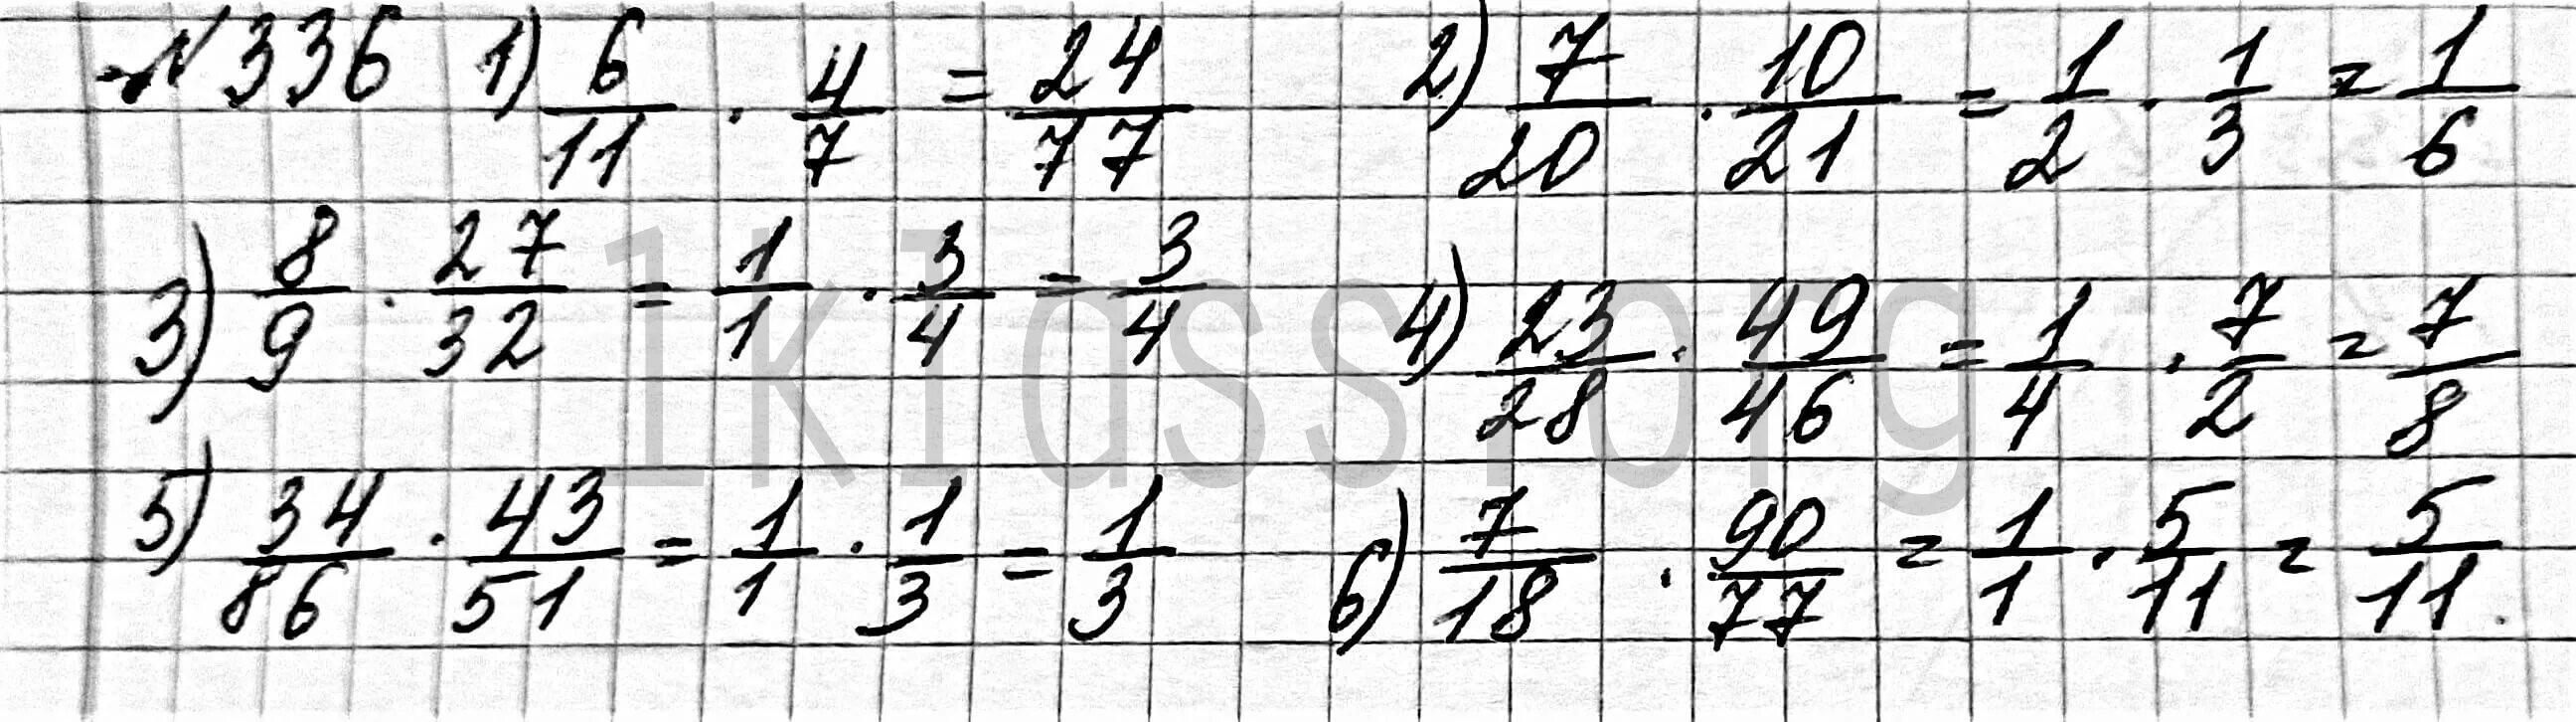 №336 1) 6/11 · 4/7 = 24/77 2) 7/20 · 10/21 = 1/2 · 1/3 = 1/6
3) 8/9 · 27/32 = 1/1 · 3/4 = 3/4 4) 23/28 · 49/46 = 1/4 · 7/2 = 7/8
5) 34/86 · 43/51 = 1/1 · 1/3 = 1/3 6) 7/18 · 90/77 = 1/1 · 5/11 = 5/11.
1klass.org